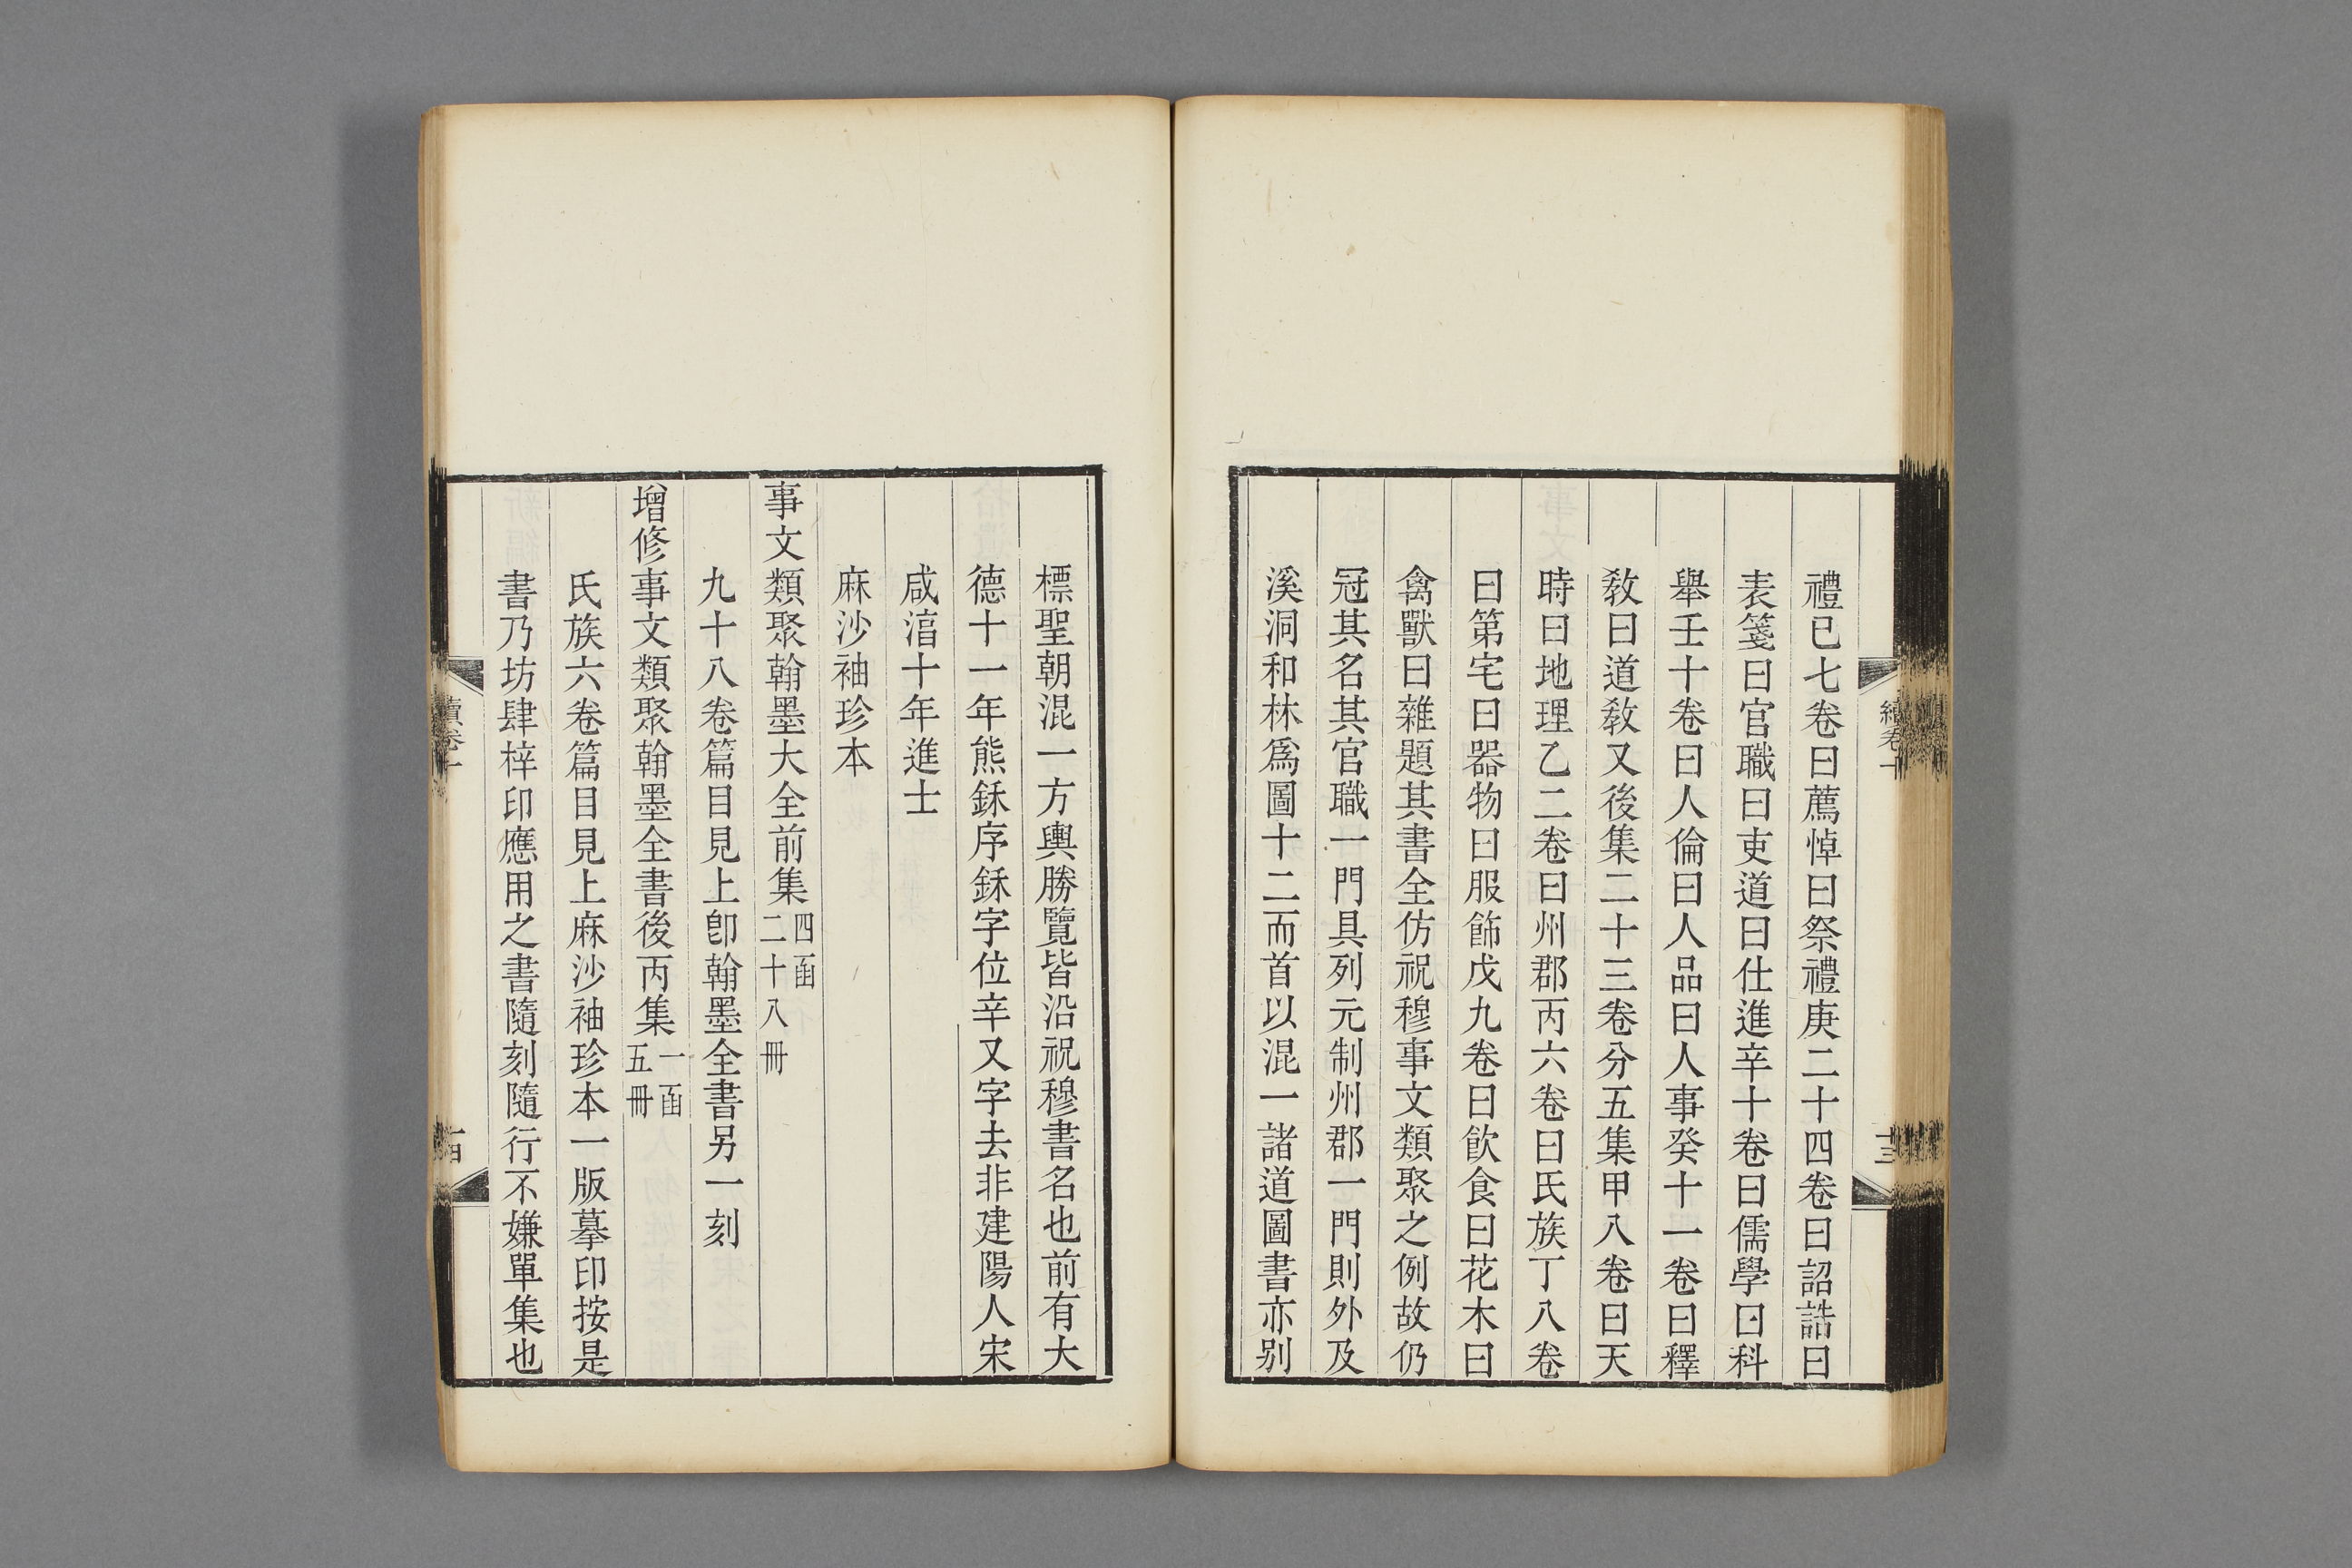 禮已七卷曰薦悼曰祭禮庚二十四卷曰詔誥曰
表箋曰官職曰吏道曰仕進辛十卷曰儒學曰科
舉壬十卷曰人倫曰人品曰人事癸十一卷曰釋
敎曰道敎又後集二十三卷分五集甲八卷曰天
時曰地理乙二卷曰州郡丙六卷曰氏族丁八卷
曰第宅曰器物曰服飾戊九卷曰飮食曰花木曰
禽獸曰雜題其書全仿祝穆事文類聚之例故仍
冠其名其官職一門具列元制州郡一門則外及
溪洞和林爲圖十二而首以混一諸道圖書亦别
標聖朝混一方輿勝覽皆沿祝穆書名也前有大
德十一年熊鉌序鉌字位辛又字去非建陽人宋
咸湻十年進士
麻沙袖珍本
事文類聚翰墨大全前集四函二十八冊
九十八卷篇目見上卽翰墨全書另一刻
增修事文類聚翰墨全書後丙集一函五冊
氏族六卷篇目見上麻沙袖珍本一版摹印按是
書乃坊肆梓印應用之書隨刻隨行不嫌單集也